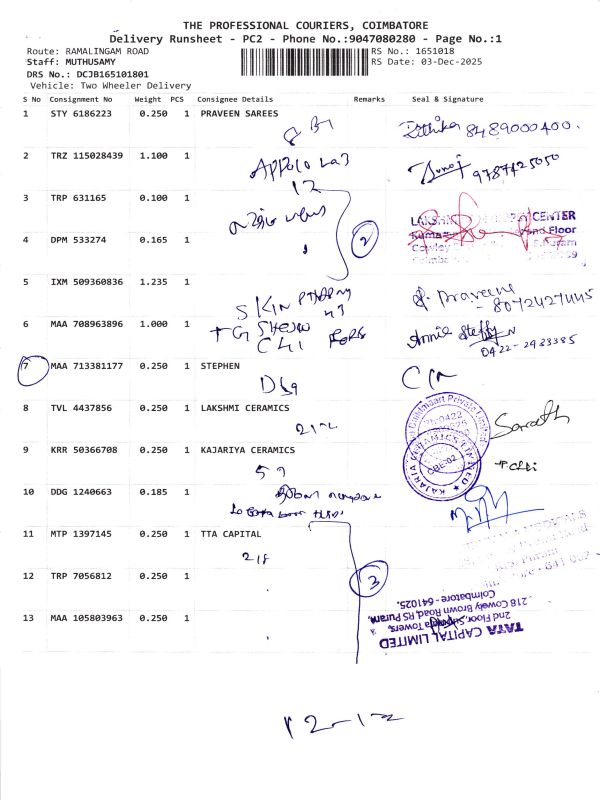 THE PROFESSIONAL COURIERS, COIMBATORE
Delivery Runsheet - PC2 - Phone No.:9047080280 - Page No.:1
Route: RAMALINGAM ROAD RS No.: 1651018
Staff: MUTHUSAMY RS Date: 03-Dec-2025
DRS No.: DCJB165101801
Vehicle: Two Wheeler Delivery
S No Consignment No Weight PCS Consignee Details Remarks Seal & Signature
1 STY 6186223 0.250 1 PRAVEEN SAREES
8489000400.
2 TRZ 115028439 1.100 1
9787425050
12
3 TRP 631165 0.100 1
CENTER
Floor
4 DPM 533274 0.165 1
2
5 IXM 509360836 1.235 1
SKIN
8072427445
6 MAA 708963896 1.000 1
TG
Annie Steffy
0422-2433385
7 MAA 713381177 0.250 1 STEPHEN
8 TVL 4437856 0.250 1 LAKSHMI CERAMICS
212
Sarath
9 KRR 50366708 0.250 1 KAJARIYA CERAMICS
59
CBE-02
10 DDG 1240663 0.185 1
11 MTP 1397145 0.250 1 TTA CAPITAL
218
12 TRP 7056812 0.250 1
3
13 MAA 105803963 0.250 1
TATA CAPITAL LIMITED
2nd Floor, Towers,
218 Cowley Brown Road, RS Puram,
Coimbatore - 641025.
12-12